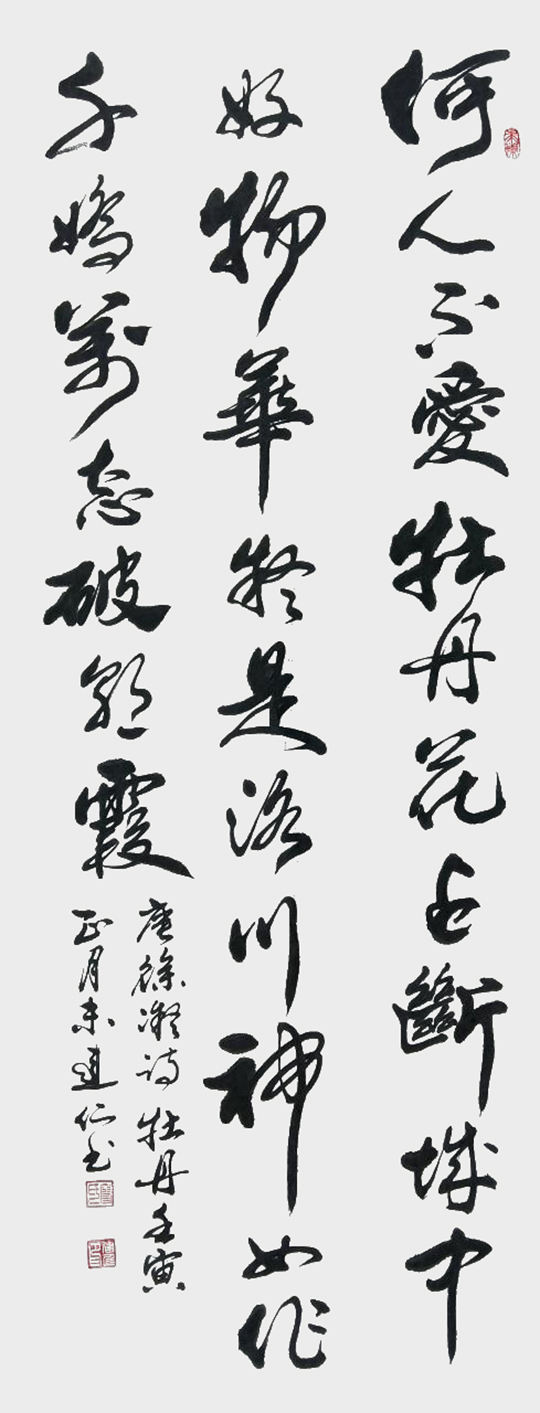 何人不愛牡丹花占斷城中
好物華疑是洛川神女作
千嬌萬態破朝霞
唐徐凝詩牡丹壬寅
正月朱仁書